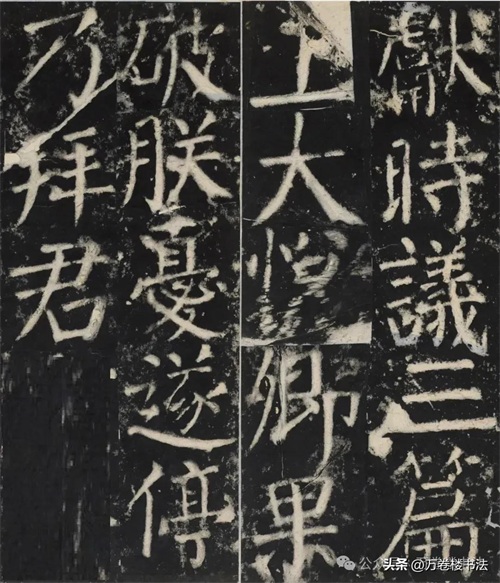 獻時議三篇
上大悅卿果
破朕憂遂停
乃拜君
公众号
头条 @万卷楼书法